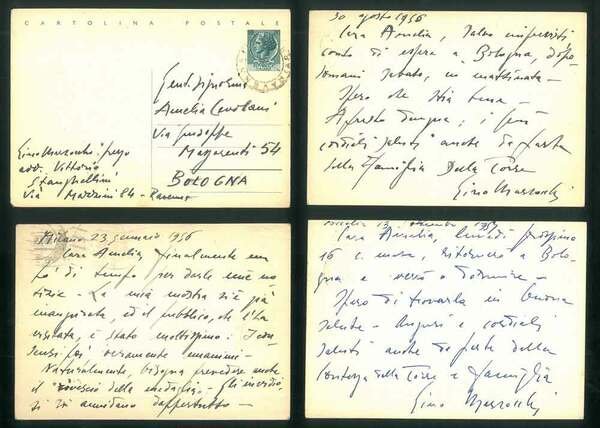 CARTOLINA POSTALE
Gent. Signorina
Amelia
Via Giuseppe
Mazzarenti 54
BOLOGNA
Gino Marzocchi presso
avv. Vittorio
Stanghellini
Via Mazzini 84 - Ravenna
30 agosto 1956
Cara Amelia, salvo imprevisti
conto di essere a Bologna, dopo
domani sabato, in mattinata -
Spero che stia bene -
Auguri
cordiali saluti anche da parte
della famiglia Della Torre
Gino Marzocchi
Milano 23 gennaio 1956
Cara Amelia, finalmente un
po' di tempo per darle mie no
tizie - La mia mostra si è già
inaugurata, ed il pubblico, che l'ha
visitata, è stato moltissimo: I con
sensi poi, veramente unanimi -
Naturalmente, bisogna prevedere anche
il rovescio della medaglia - Gli invidiosi,
si annidano dappertutto -
Cara Amelia, lunedì prossimo
16 c. mese, ritornerò a Bolo
gna e verrò a dormire -
Spero di trovarla in buona
salute - Auguri e cordiali
saluti anche da parte della
Contessa della Torre e famiglia
Gino Marzocchi